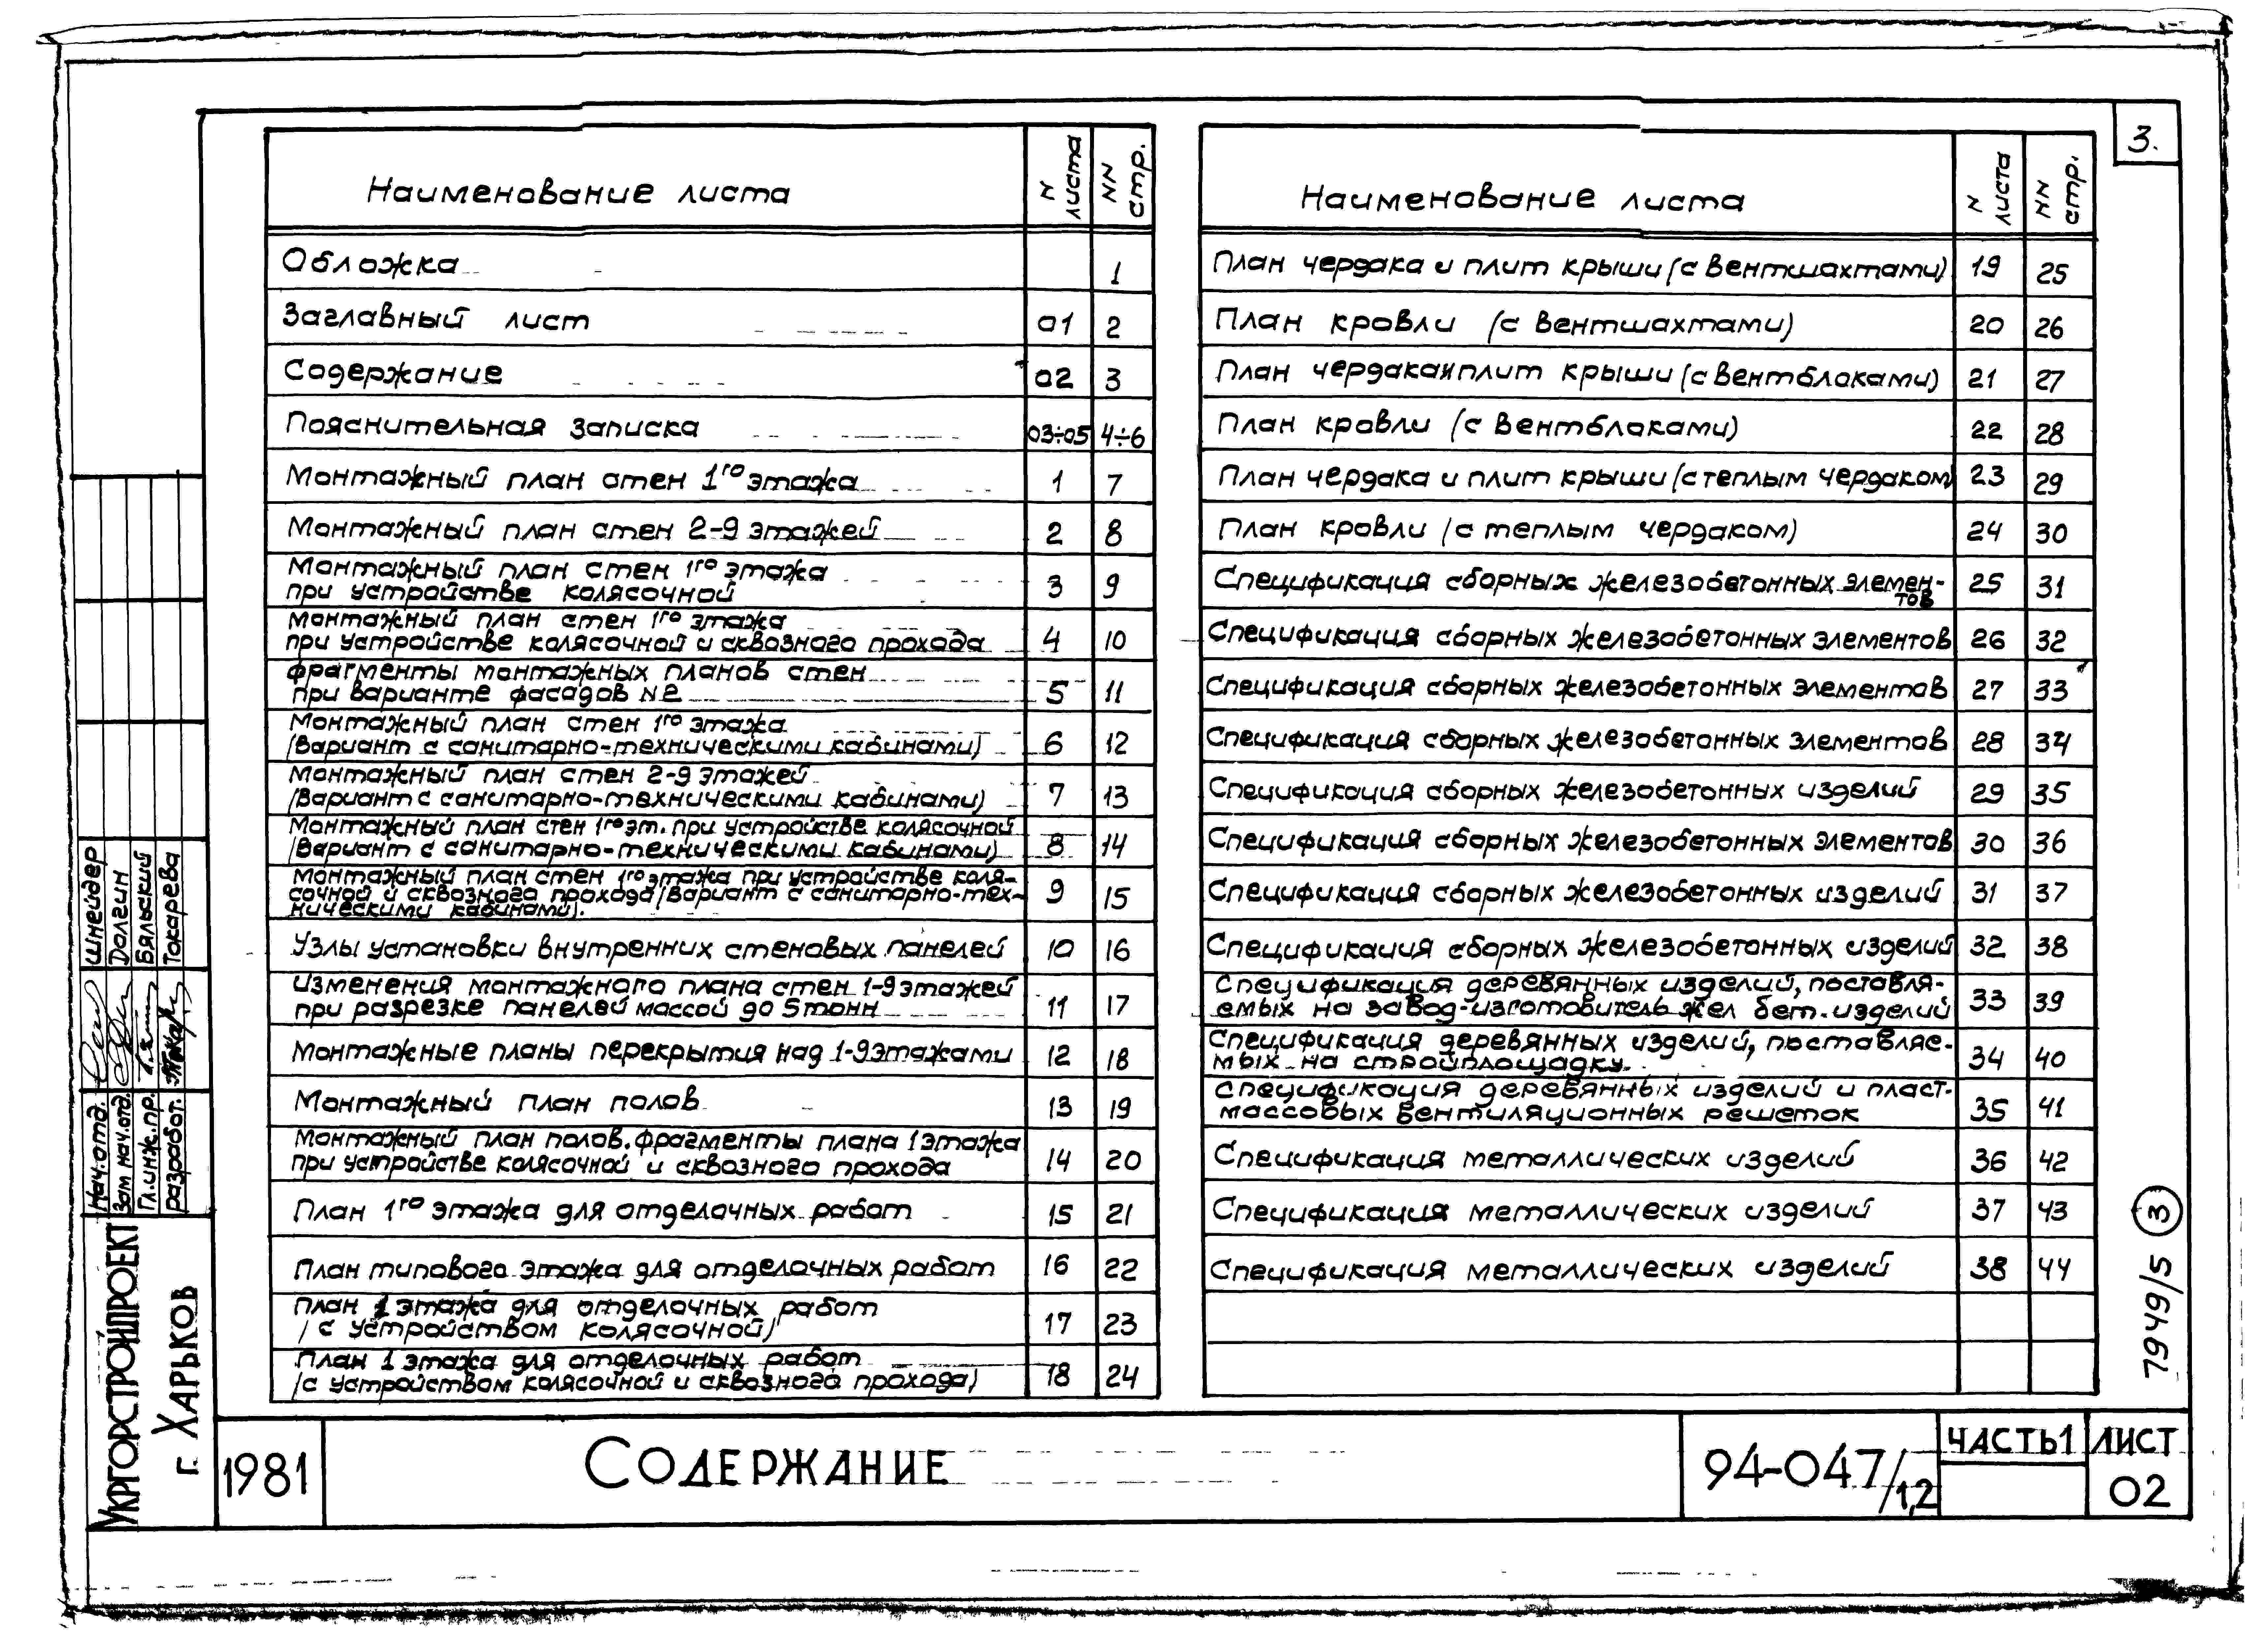 3.
Наименование листа
N листа
NN стр.
Обложка 1
Заглавный лист 01 2
Содержание 02 3
Пояснительная записка 03÷05 4÷6
Монтажный план стен 1го этажа 1 7
Монтажный план стен 2-9 этажей 2 8
Монтажный план стен 1го этажа
при устройстве колясочной 3 9
Монтажный план стен 1го этажа
при устройстве колясочной и сквозного прохода 4 10
Фрагменты монтажных планов стен
при варианте фасадов N2 5 11
Монтажный план стен 1го этажа
(вариант с санитарно-техническими кабинами) 6 12
Монтажный план стен 2-9 этажей
(вариант с санитарно-техническими кабинами) 7 13
Монтажный план стен 1го эт. при устройстве колясочной
(вариант с санитарно-техническими кабинами) 8 14
Монтажный план стен 1го этажа при устройстве коля-
сочной и сквозного прохода (вариант с санитарно-тех-
ническими кабинами). 9 15
Узлы установки внутренних стеновых панелей 10 16
Изменения монтажного плана стен 1-9 этажей
при разрезке панелей массой до 5 тонн 11 17
Монтажные планы перекрытия над 1-9 этажами 12 18
Монтажный план полов 13 19
Монтажный план полов. Фрагменты плана 1 этажа
при устройстве колясочной и сквозного прохода 14 20
План 1го этажа для отделочных работ 15 21
План типового этажа для отделочных работ 16 22
План 1 этажа для отделочных работ
(с устройством колясочной) 17 23
План 1 этажа для отделочных работ
(с устройством колясочной и сквозного прохода) 18 24
Наименование листа
N листа
NN стр.
План чердака и плит крыши (с вентшахтами) 19 25
План кровли (с вентшахтами) 20 26
План чердака и плит крыши (с вентблоками) 21 27
План кровли (с вентблоками) 22 28
План чердака и плит крыши (с теплым чердаком) 23 29
План кровли (с теплым чердаком) 24 30
Спецификация сборных железобетонных элемен-
тов 25 31
Спецификация сборных железобетонных элементов 26 32
Спецификация сборных железобетонных элементов 27 33
Спецификация сборных железобетонных элементов 28 34
Спецификация сборных железобетонных изделий 29 35
Спецификация сборных железобетонных элементов 30 36
Спецификация сборных железобетонных изделий 31 37
Спецификация сборных железобетонных изделий 32 38
Спецификация деревянных изделий, поставля-
емых на завод-изготовитель жел бет. изделий 33 39
Спецификация деревянных изделий, поставляе-
мых на стройплощадку. 34 40
Спецификация деревянных изделий и пласт-
массовых вентиляционных решеток 35 41
Спецификация металлических изделий 36 42
Спецификация металлических изделий 37 43
Спецификация металлических изделий 38 44
Нач. отд. Шнейдер
Зам нач. отд. Долгин
Гл. инж. пр. Бяльский
разработ. Токарева
Укргорстройпроект
г. Харьков
1981
Содержание
94-047/1,2
Часть 1
Лист
02
7949/5 3